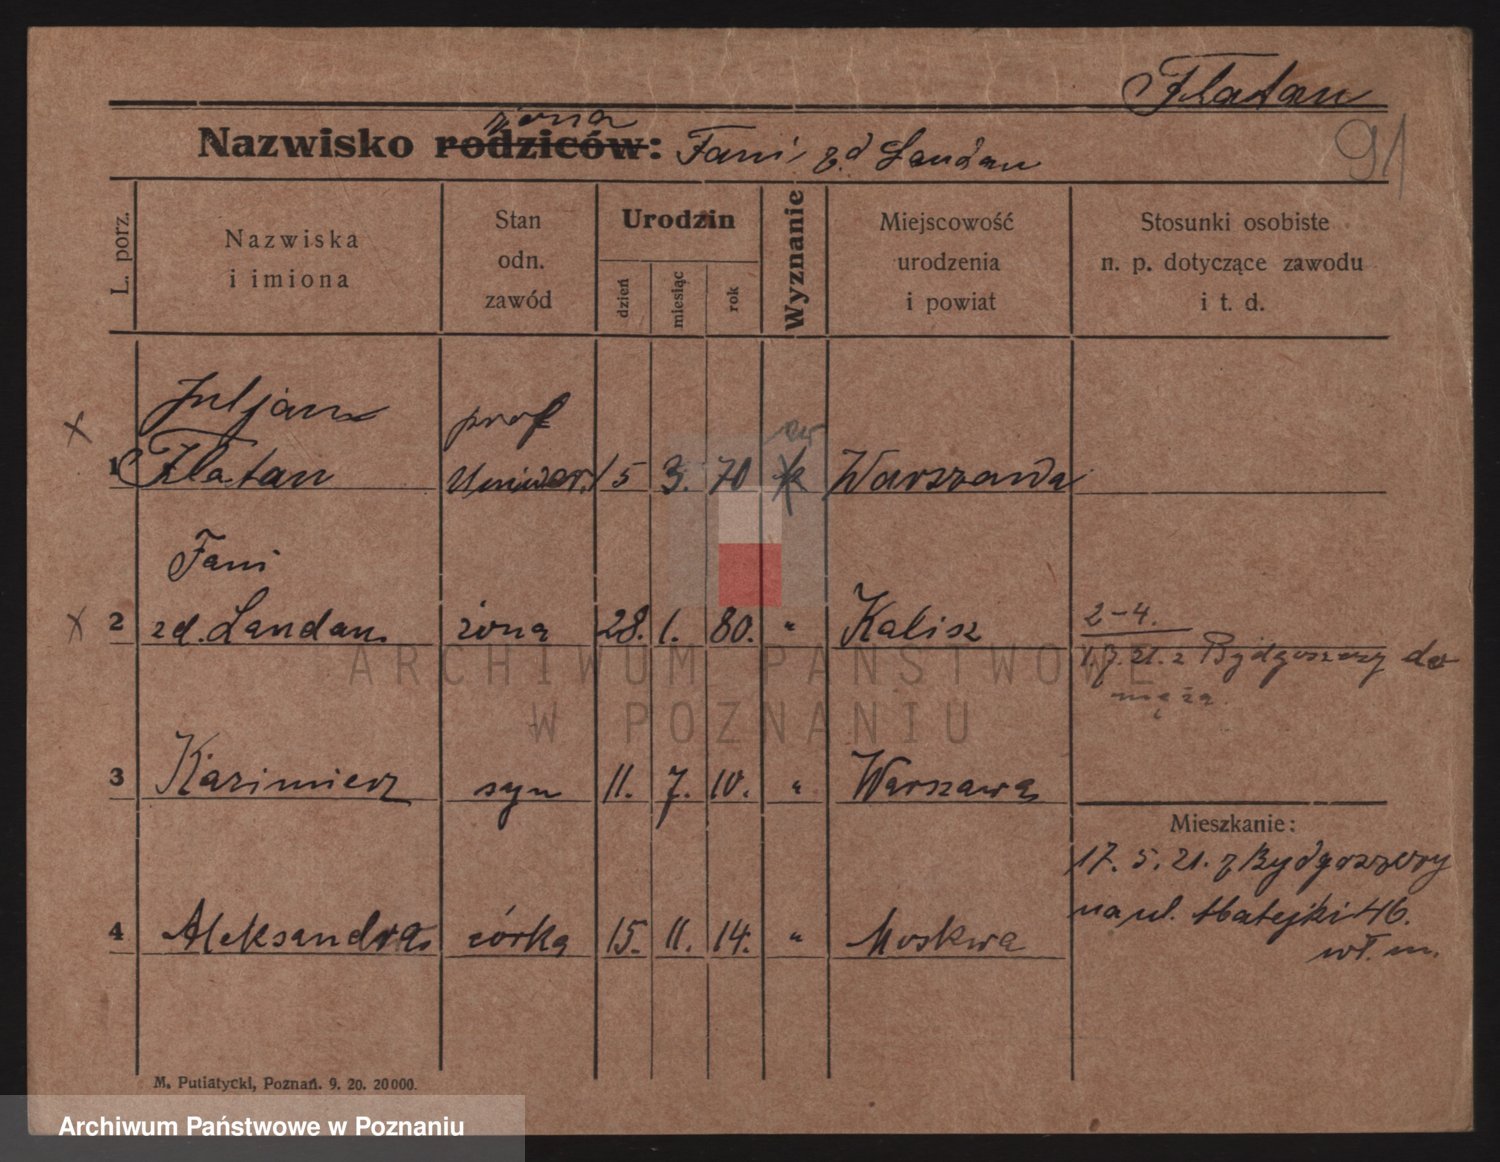 Flatau
żona
Nazwisko rodziców: Fani z d Landau
91
L. porz.
Nazwiska
i imiona
Stan
odn.
zawód
Urodzin
dzień
miesiąc
rok
Wyznanie
Miejscowość
urodzenia
i powiat
Stosunki osobiste
n. p. dotyczące zawodu
i t. d.
Juljan prof ew
x 1 Flatau Uniwer. 15 3. 70 Warszawa
Fani
x 2 zd. Landau żona 28. 1. 80. " Kalisz 2-4.
1.7.21. z Bydgoszczy do
męża
3 Kazimierz syn 11. 7. 10. " Warszawa
Mieszkanie:
17. 5. 21. z Bydgoszczy
4 Aleksandra córka 15. 11. 14. " Moskwa na ul. Matejki 46.
wł. m.
M. Putiatycki, Poznań. 9. 20. 20000.
ARCHIWUM PAŃSTWOWE
W POZNANIU
Archiwum Państwowe w Poznaniu